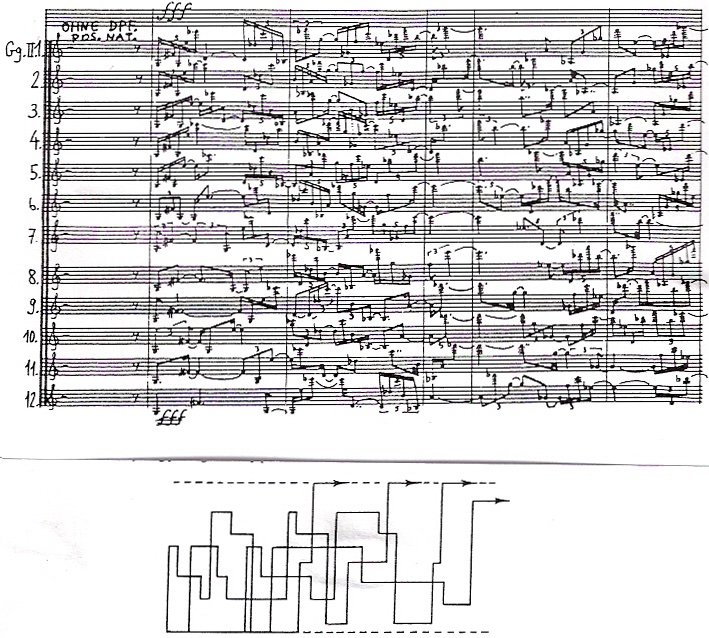 fff
OHNE DPF.
POS. NAT.
Gg.II1
2.
3.
4.
5.
6.
7.
8.
9.
10.
11.
12.
fff